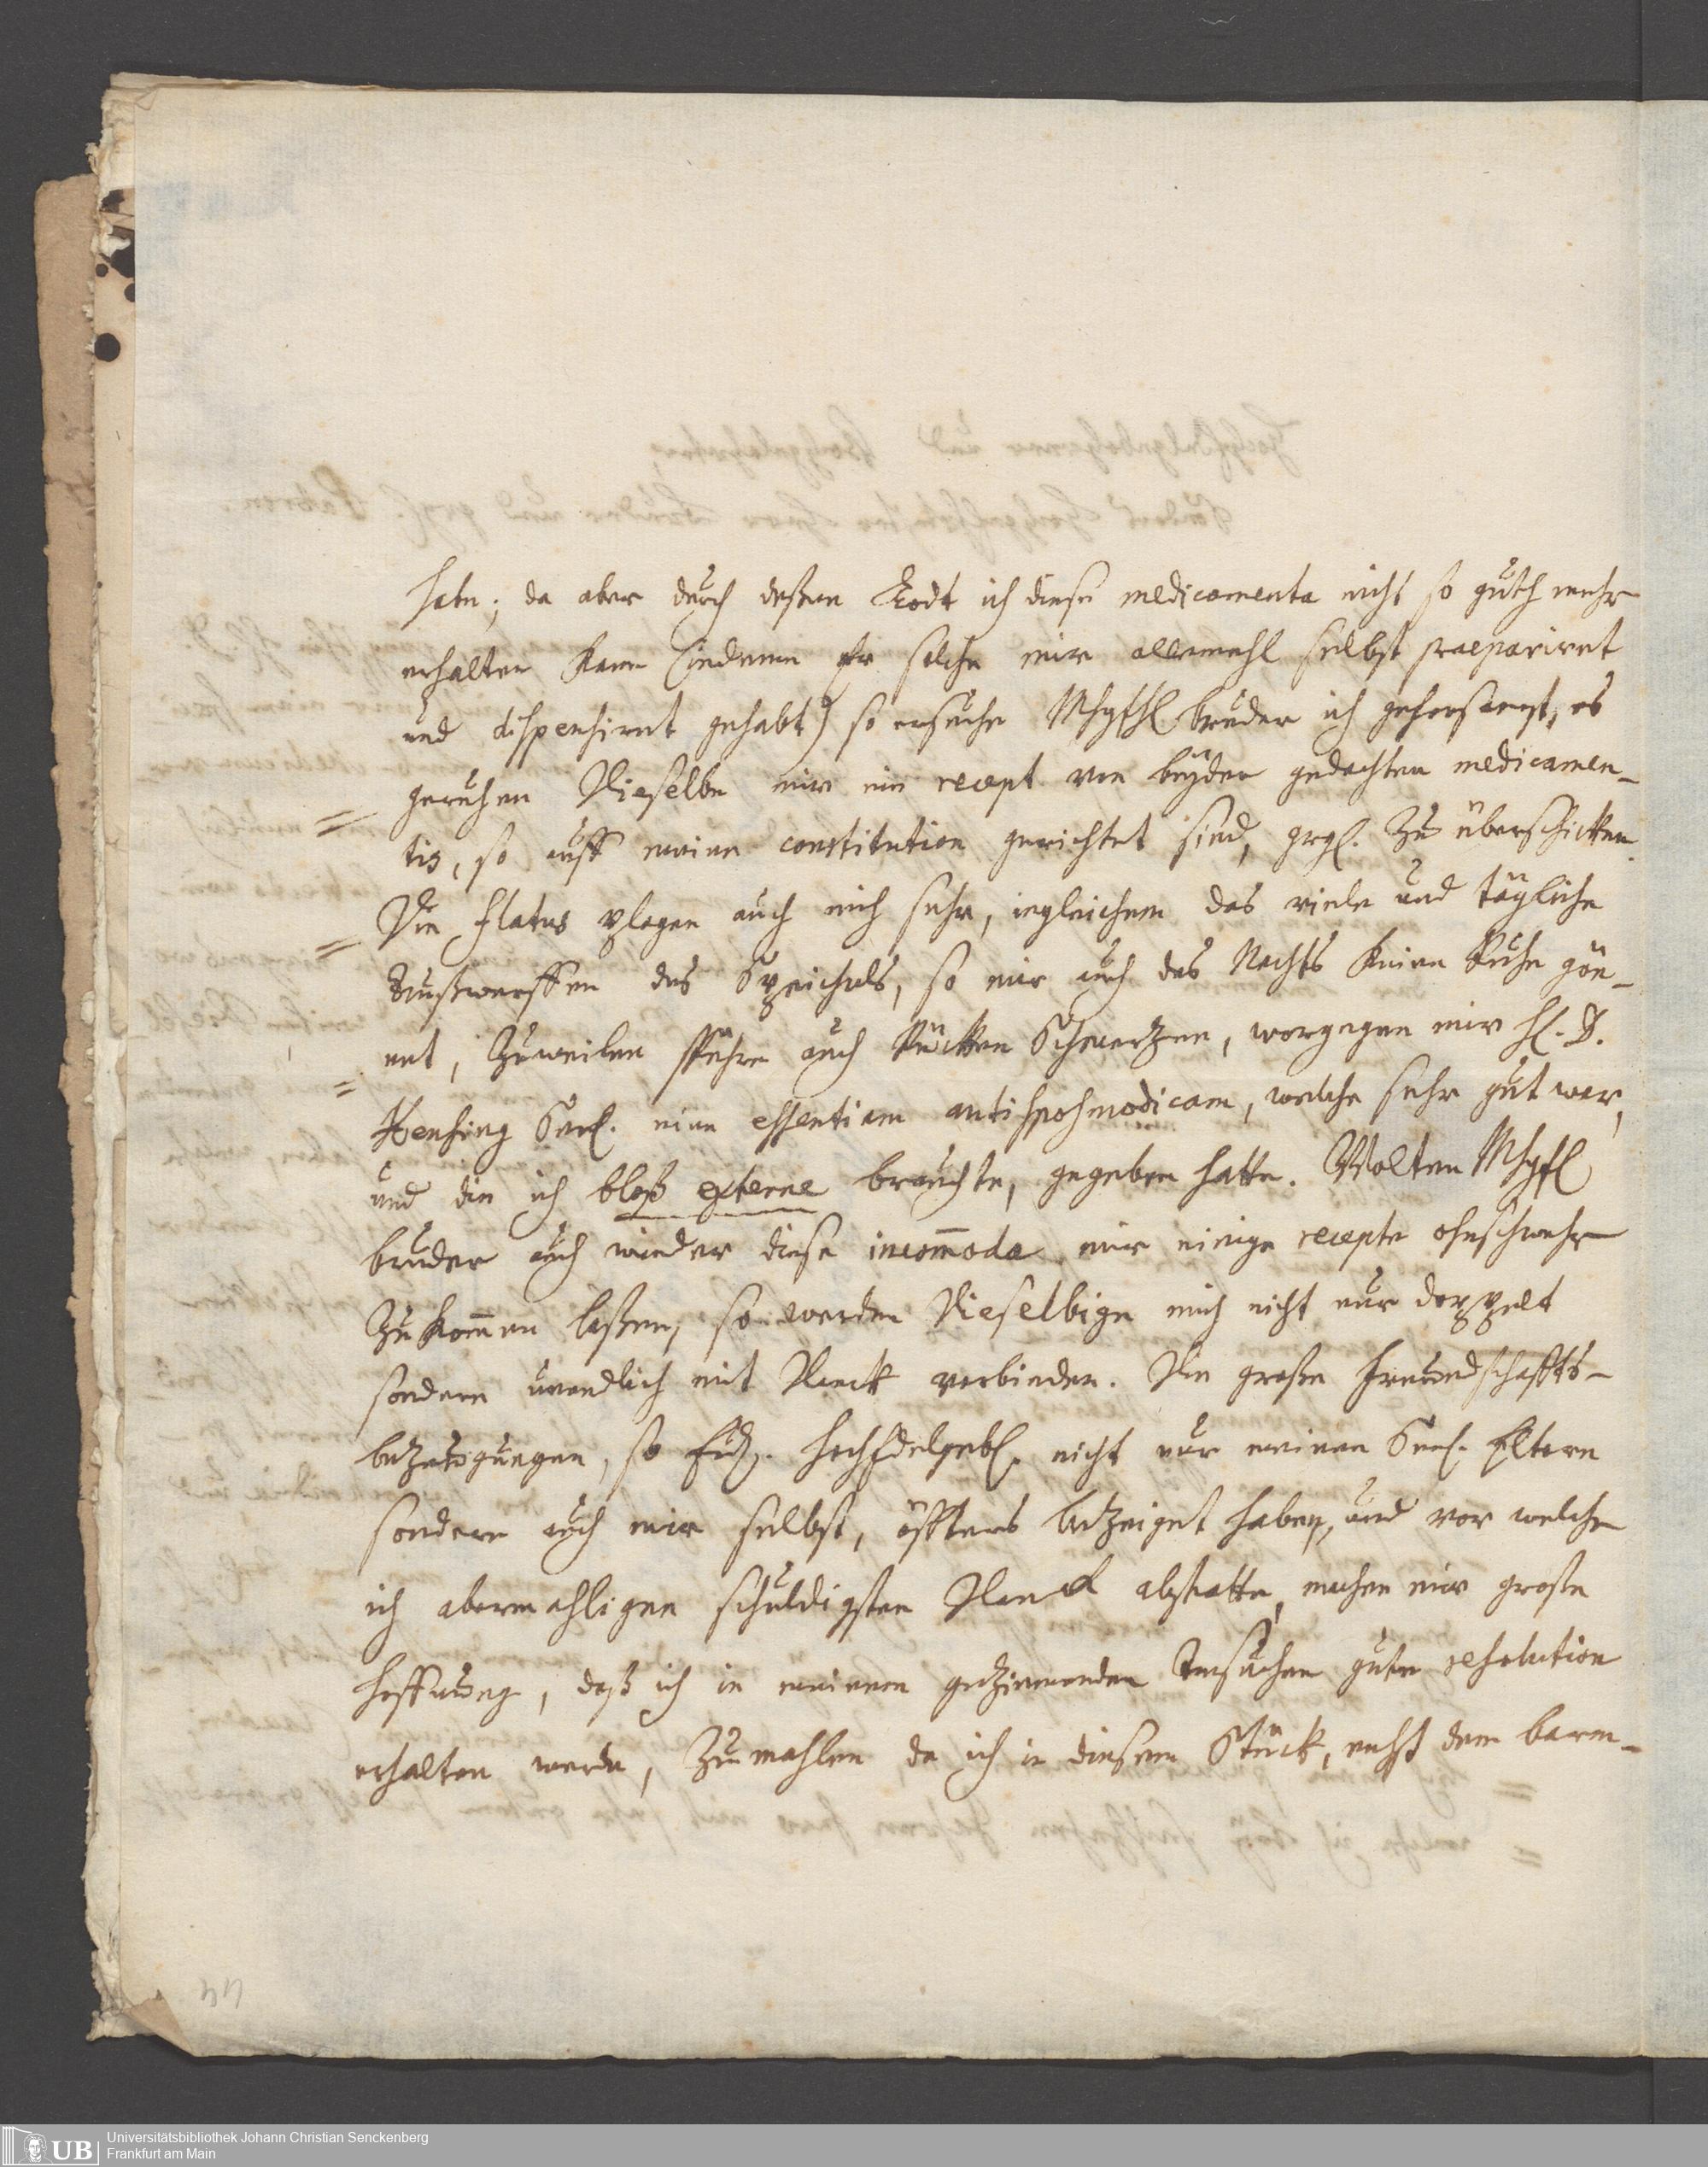 habe; da aber durch deßen Todt ich diese medicamenta nicht so guth mehr
erhalten kann (indeme Er solche mir allemahl selbst praepariret
und dispensiret gehabt) so ersuche Mhgfhl bruder ich gehorsamst, es
geruhen Dieselbe mir ein recept von beyden gedachten medicamen-
tis, so auff meine constitution gerichtet sind, grgl. zu überschicken.
Die flatus plagen auch mich sehr, ingleichem das viele und tägliche
Außwerffen des Speichels, so mir auch des Nachts keine Ruhe gön-
net, zuweilen spühre auch Rücken Schmertzen, worgegen mir H. D.
Hensing Seel. eine essentiam antispasmodicam, welche sehr gut war,
und die ich bloß externe brauchte, gegeben hatte. Wolten Mhgfl
bruder auch wieder diese incom̄oda mir einige recepte ohnschwehr
zukom̄en laßen, so werden Dieselbige mich nicht nur doppelt
sondern unendlich mit Danck verbinden. Die große Freundschaffts-
bezeugungen, so Ew. HochEdelgebl. nicht nur meinen Seel. Eltern
sondern auch mir selbst, öffters bezeiget haben, und vor welche
ich abermahligen schuldigsten Danck abstatte, machen mir große
Hoffnung, daß ich in meinem geziemenden Ansuchen gute resolution
erhalten werde, zumahlen da ich in diesem Stück, nechst dem barm-
44
UB
Universitätsbibliothek Johann Christian Senckenberg
Frankfurt am Main